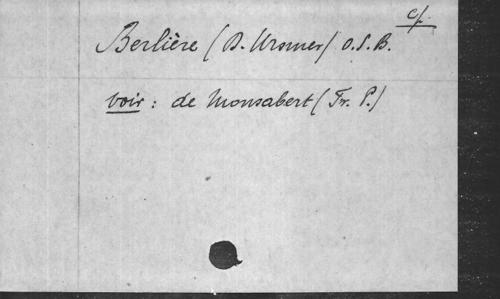 cf.
Berlière (D. Ursmer) O.S.B.
voir : de Monsabert (Fr. P.)